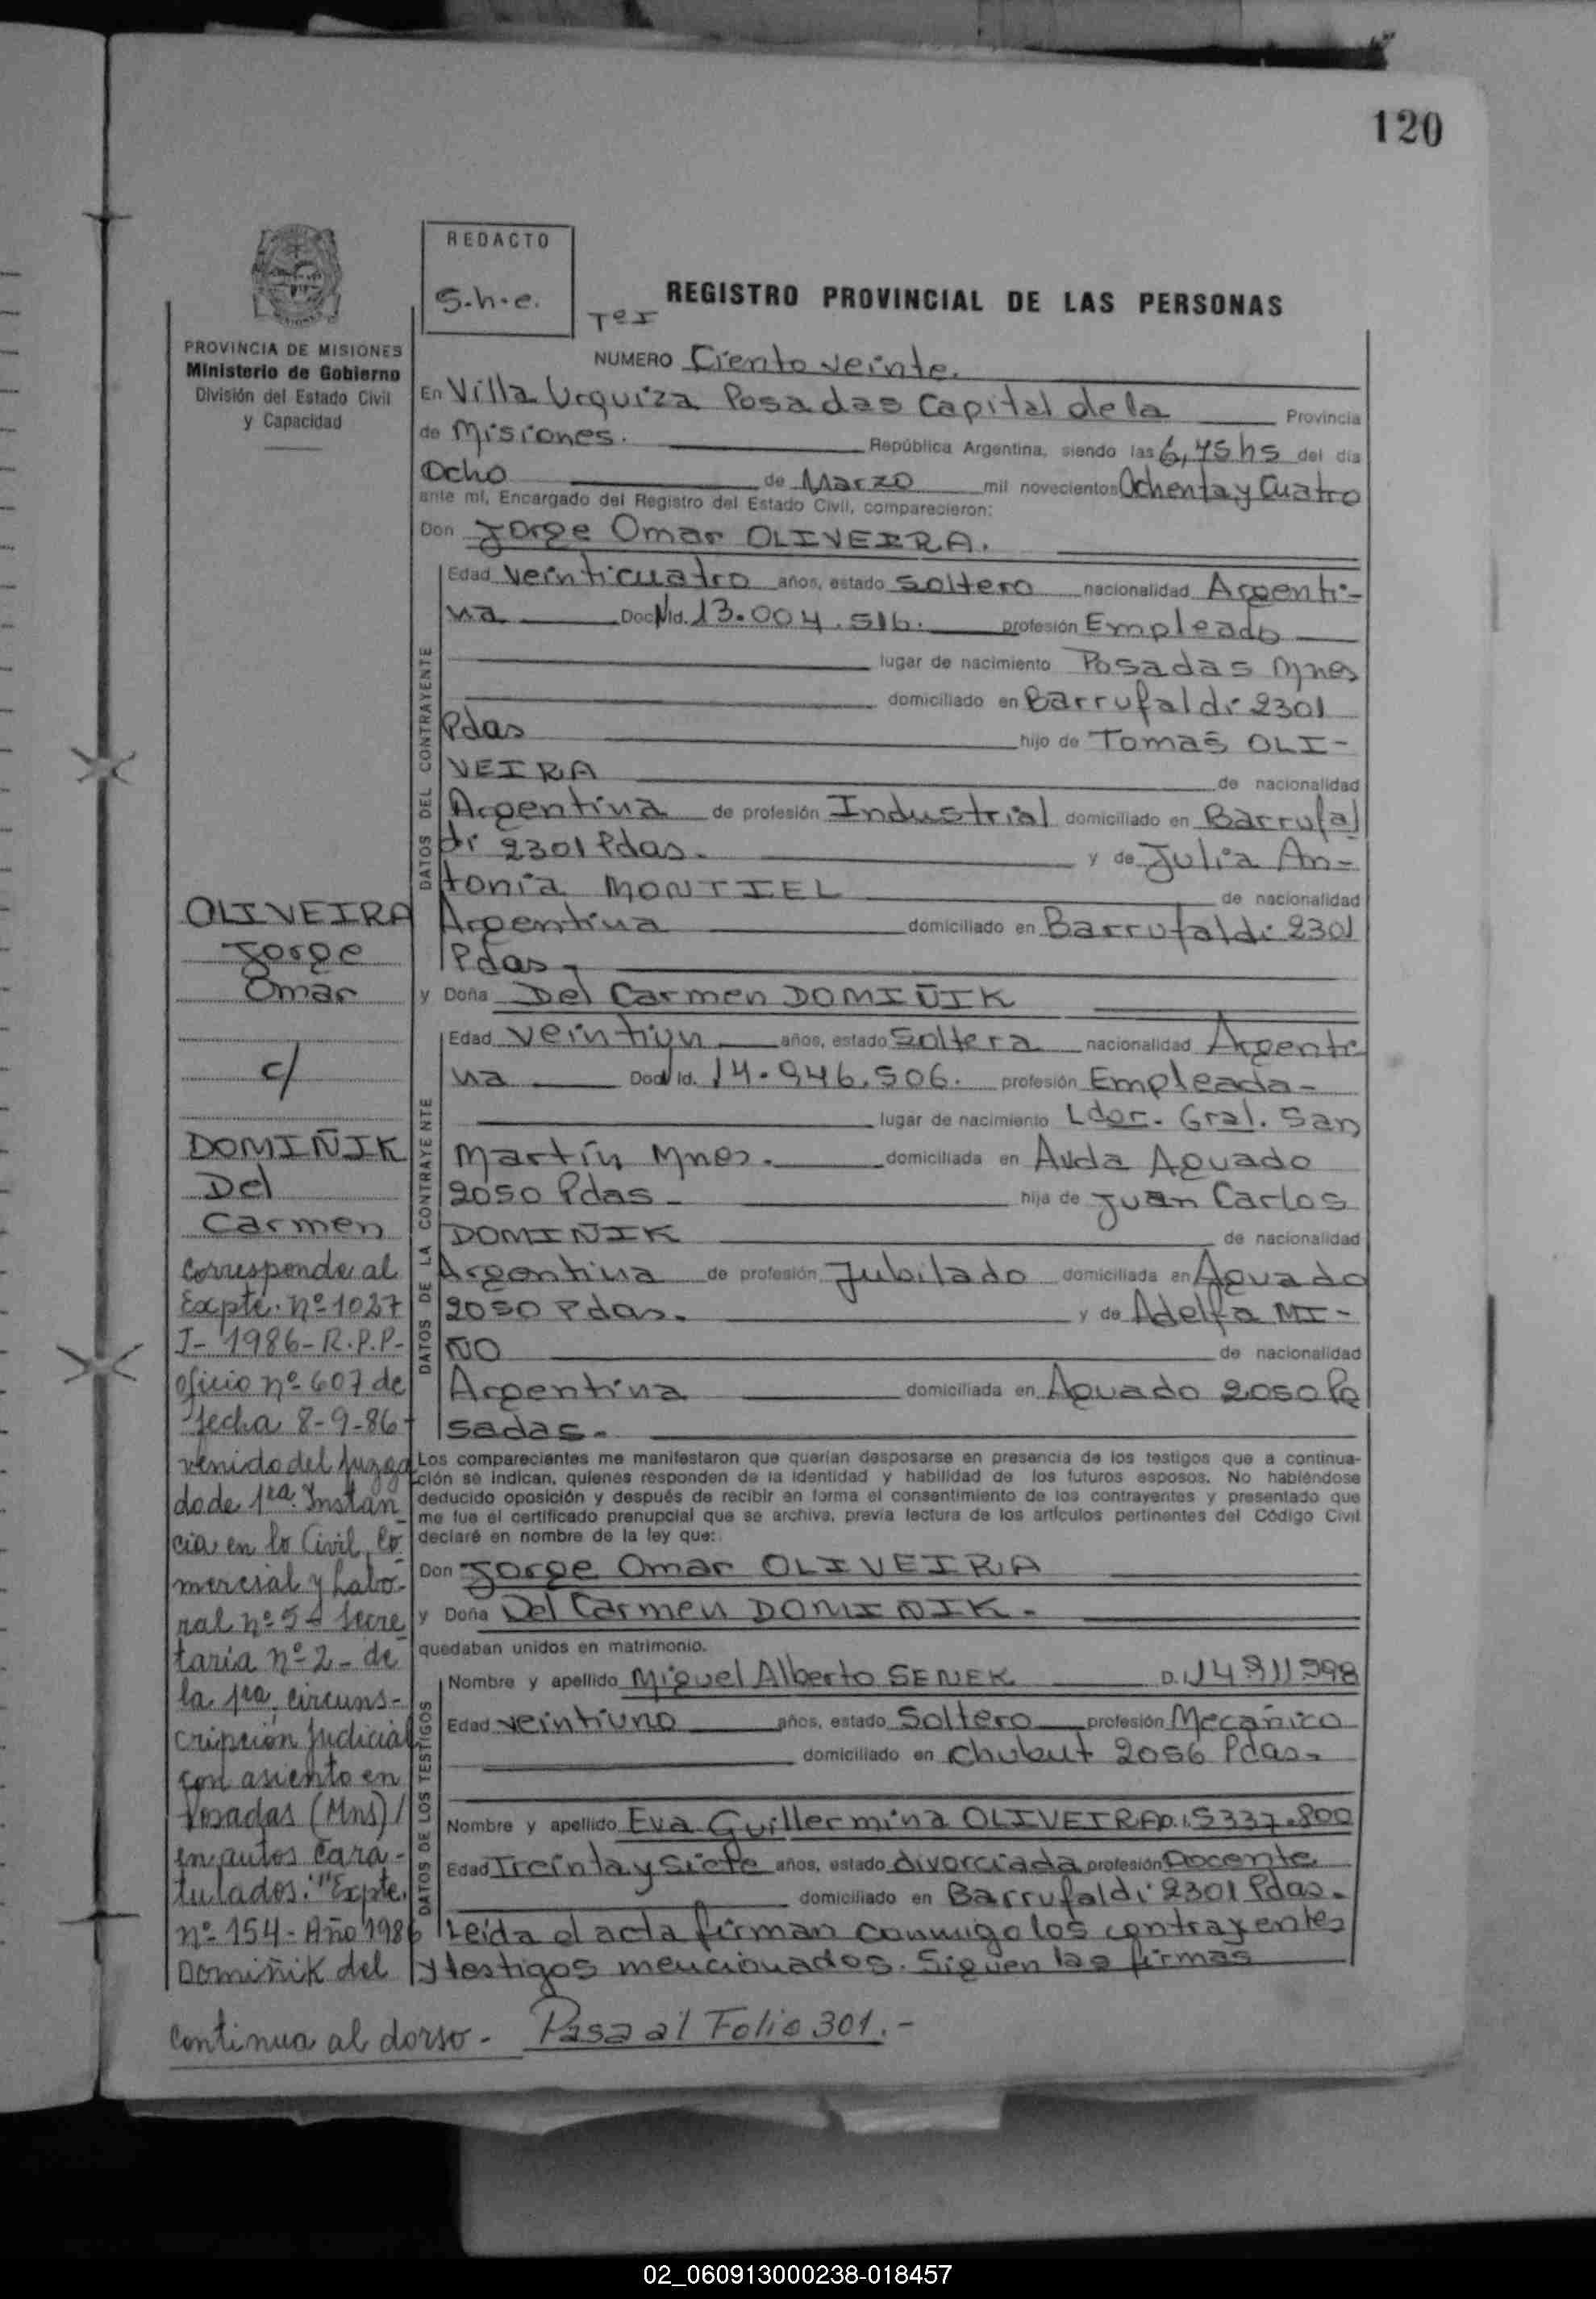 120
REDACTO
S.h.e.
REGISTRO PROVINCIAL DE LAS PERSONAS
PROVINCIA DE MISIONES
Ministerio de Gobierno
División del Estado Civil
y Capacidad
NUMERO Ciento veinte.
En Villa Urquiza Posadas Capital de la Provincia
de Misiones. República Argentina, siendo las 6,45 hs del día
Ocho de Marzo mil novecientos Ochenta y Cuatro
ante mí, Encargado del Registro del Estado Civil, comparecieron:
Don Jorge Omar OLIVEIRA.
DATOS DEL CONTRAYENTE
Edad veinticuatro años, estado soltero nacionalidad Argenti-
na Doc N Id. 13.004.516. profesión Empleado
lugar de nacimiento Posadas Mnes
domiciliado en Barrufaldi 2301
Pdas hijo de Tomas OLI-
VEIRA de nacionalidad
Argentina de profesión Industrial domiciliado en Barrufal
di 2301 Pdas. y de Julia An-
tonia MONTIEL de nacionalidad
Argentina domiciliado en Barrufaldi 2301
Pdas-
y Doña Del Carmen DOMIÑIK
DATOS DE LA CONTRAYENTE
Edad veintiun años, estado soltera nacionalidad Argenti
na Doc N Id. 14.946.506. profesión Empleada-
lugar de nacimiento Ldor. Gral. San
Martín Mnes. domiciliada en Avda Aguado
2050 Pdas- hija de Juan Carlos
DOMIÑIK de nacionalidad
Argentina de profesión Jubilado domiciliada en Aguado
2050 Pdas. y de Adelfa MI-
ÑO de nacionalidad
Argentina domiciliada en Aguado 2050 Po
sadas.
Los comparecientes me manifestaron que querían desposarse en presencia de los testigos que a continua-
ción se indican, quienes responden de la identidad y habilidad de los futuros esposos. No habiéndose
deducido oposición y después de recibir en forma el consentimiento de los contrayentes y presentado que
me fue el certificado prenupcial que se archiva, previa lectura de los artículos pertinentes del Código Civil
declaré en nombre de la ley que:
Don Jorge Omar OLIVEIRA
y Doña Del Carmen DOMIÑIK-
quedaban unidos en matrimonio.
DATOS DE LOS TESTIGOS
Nombre y apellido Miguel Alberto SENEK D.I 14911998
Edad veintiuno años, estado Soltero profesión Mecánico
domiciliado en Chubut 2056 Pdas-
Nombre y apellido Eva Guillermina OLIVEIRA D.I 5337.800
Edad Treinta y Siete años, estado divorciada profesión Docente
domiciliado en Barrufaldi 2301 Pdas.
Leída el acta firman conmigo los contrayentes
y testigos mencionados. Siguen las firmas
OLIVEIRA
Jorge
Omar
c/
DOMIÑIK
Del
Carmen
Corresponde al
Expte. nº 1027
I- 1986- R.P.P-
oficio nº 607 de
fecha 8-9-86-
venido del Juzga
do de 1ra. Instan
cia en lo Civil, Co
mercial y Labo-
ral nº 5 Secre
taría nº 2- de
la 1ra. circuns-
cripción Judicial
con asiento en
Posadas (Mns)/
en autos Cara-
tulados: "Expte.
nº 154- Año 1986
Domiñik del
continua al dorso- Pasa al Folio 301.-
02_060913000238-018457